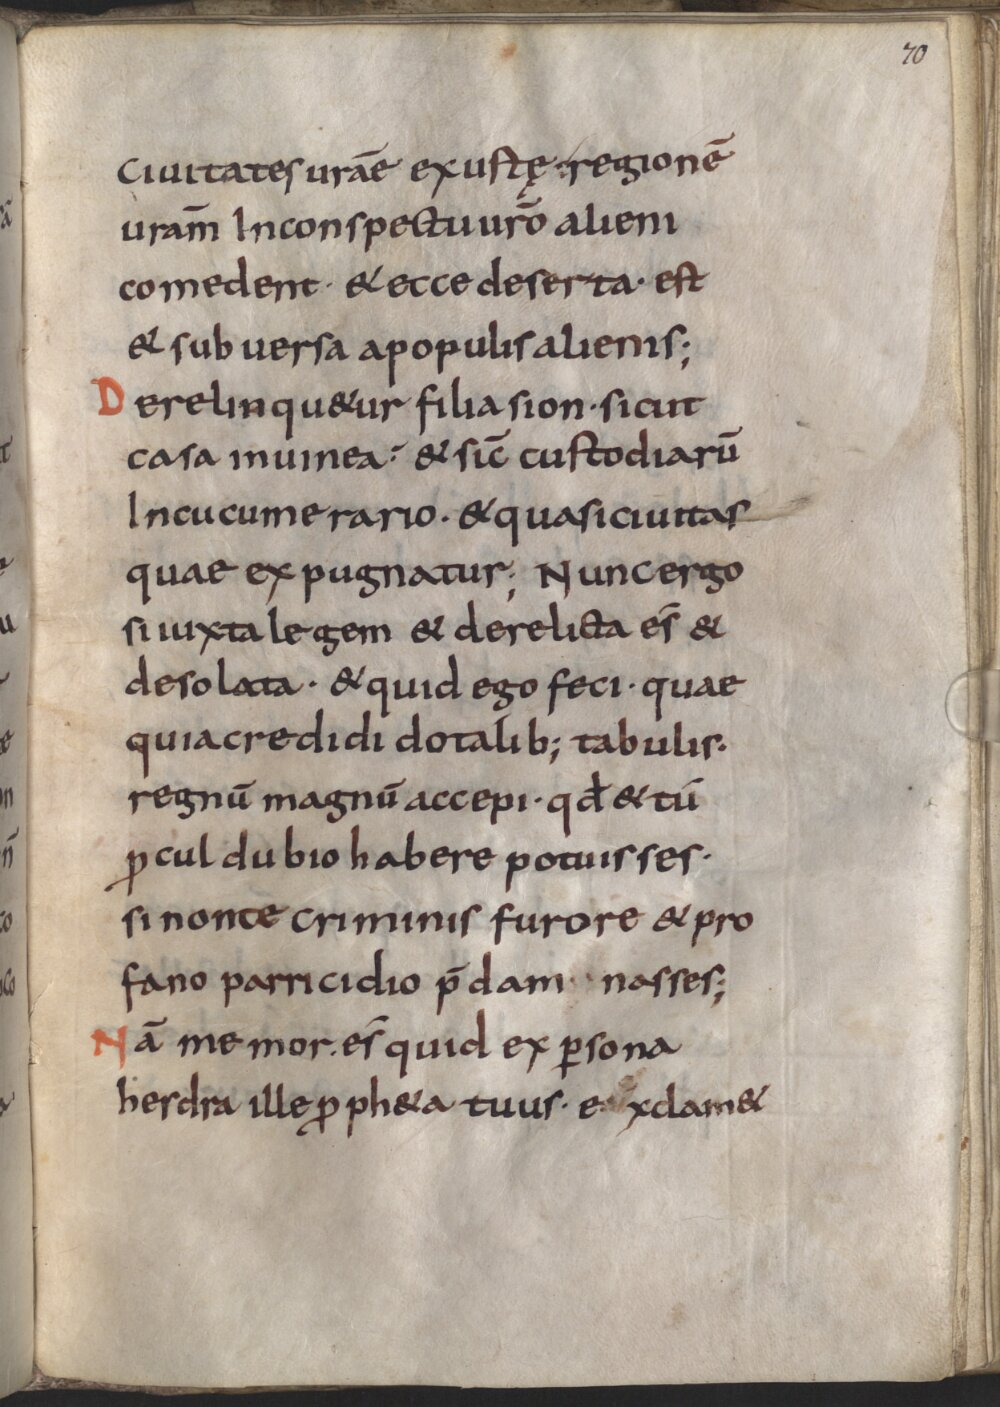 70
ciuitates urãe exustę regionē
uram̄ In conspectu ur̄o alieni
comedent · & ecce deserta · est
& subuersa a populis alienis;
Derelinqu&ur filia sion · sicut
casa in uinea · & sic̄ custodiarū
In cucumerario · & quasi ciuitas
quae expugnatur; Nunc ergo
si iuxta legem & derelicta es̄ &
desolata · & quid ego feci · quae
quia credidi dotalib; tabulis ·
regnū magnū accepi · qd̄ & tū
ꝓcul dubio habere potuisses ·
si non te criminis furore & pro
fano parricidio p̄dam nasses;
Nā memor · es̄ quid ex ꝑsona
hesdra ille ꝓph&a tuus · e xclam&